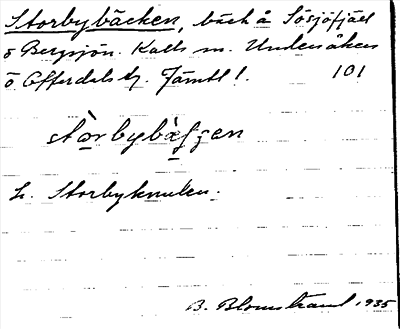 Storbybäcken, bäck å Sösjöfjäll
ö Bergsjön. Kalls sn. Undersåkers
o Offerdals tg. Jämtl.
101
stòrbybæ̀ʃʒen
L. Storbyknulen.
B. Blomstrand 1935